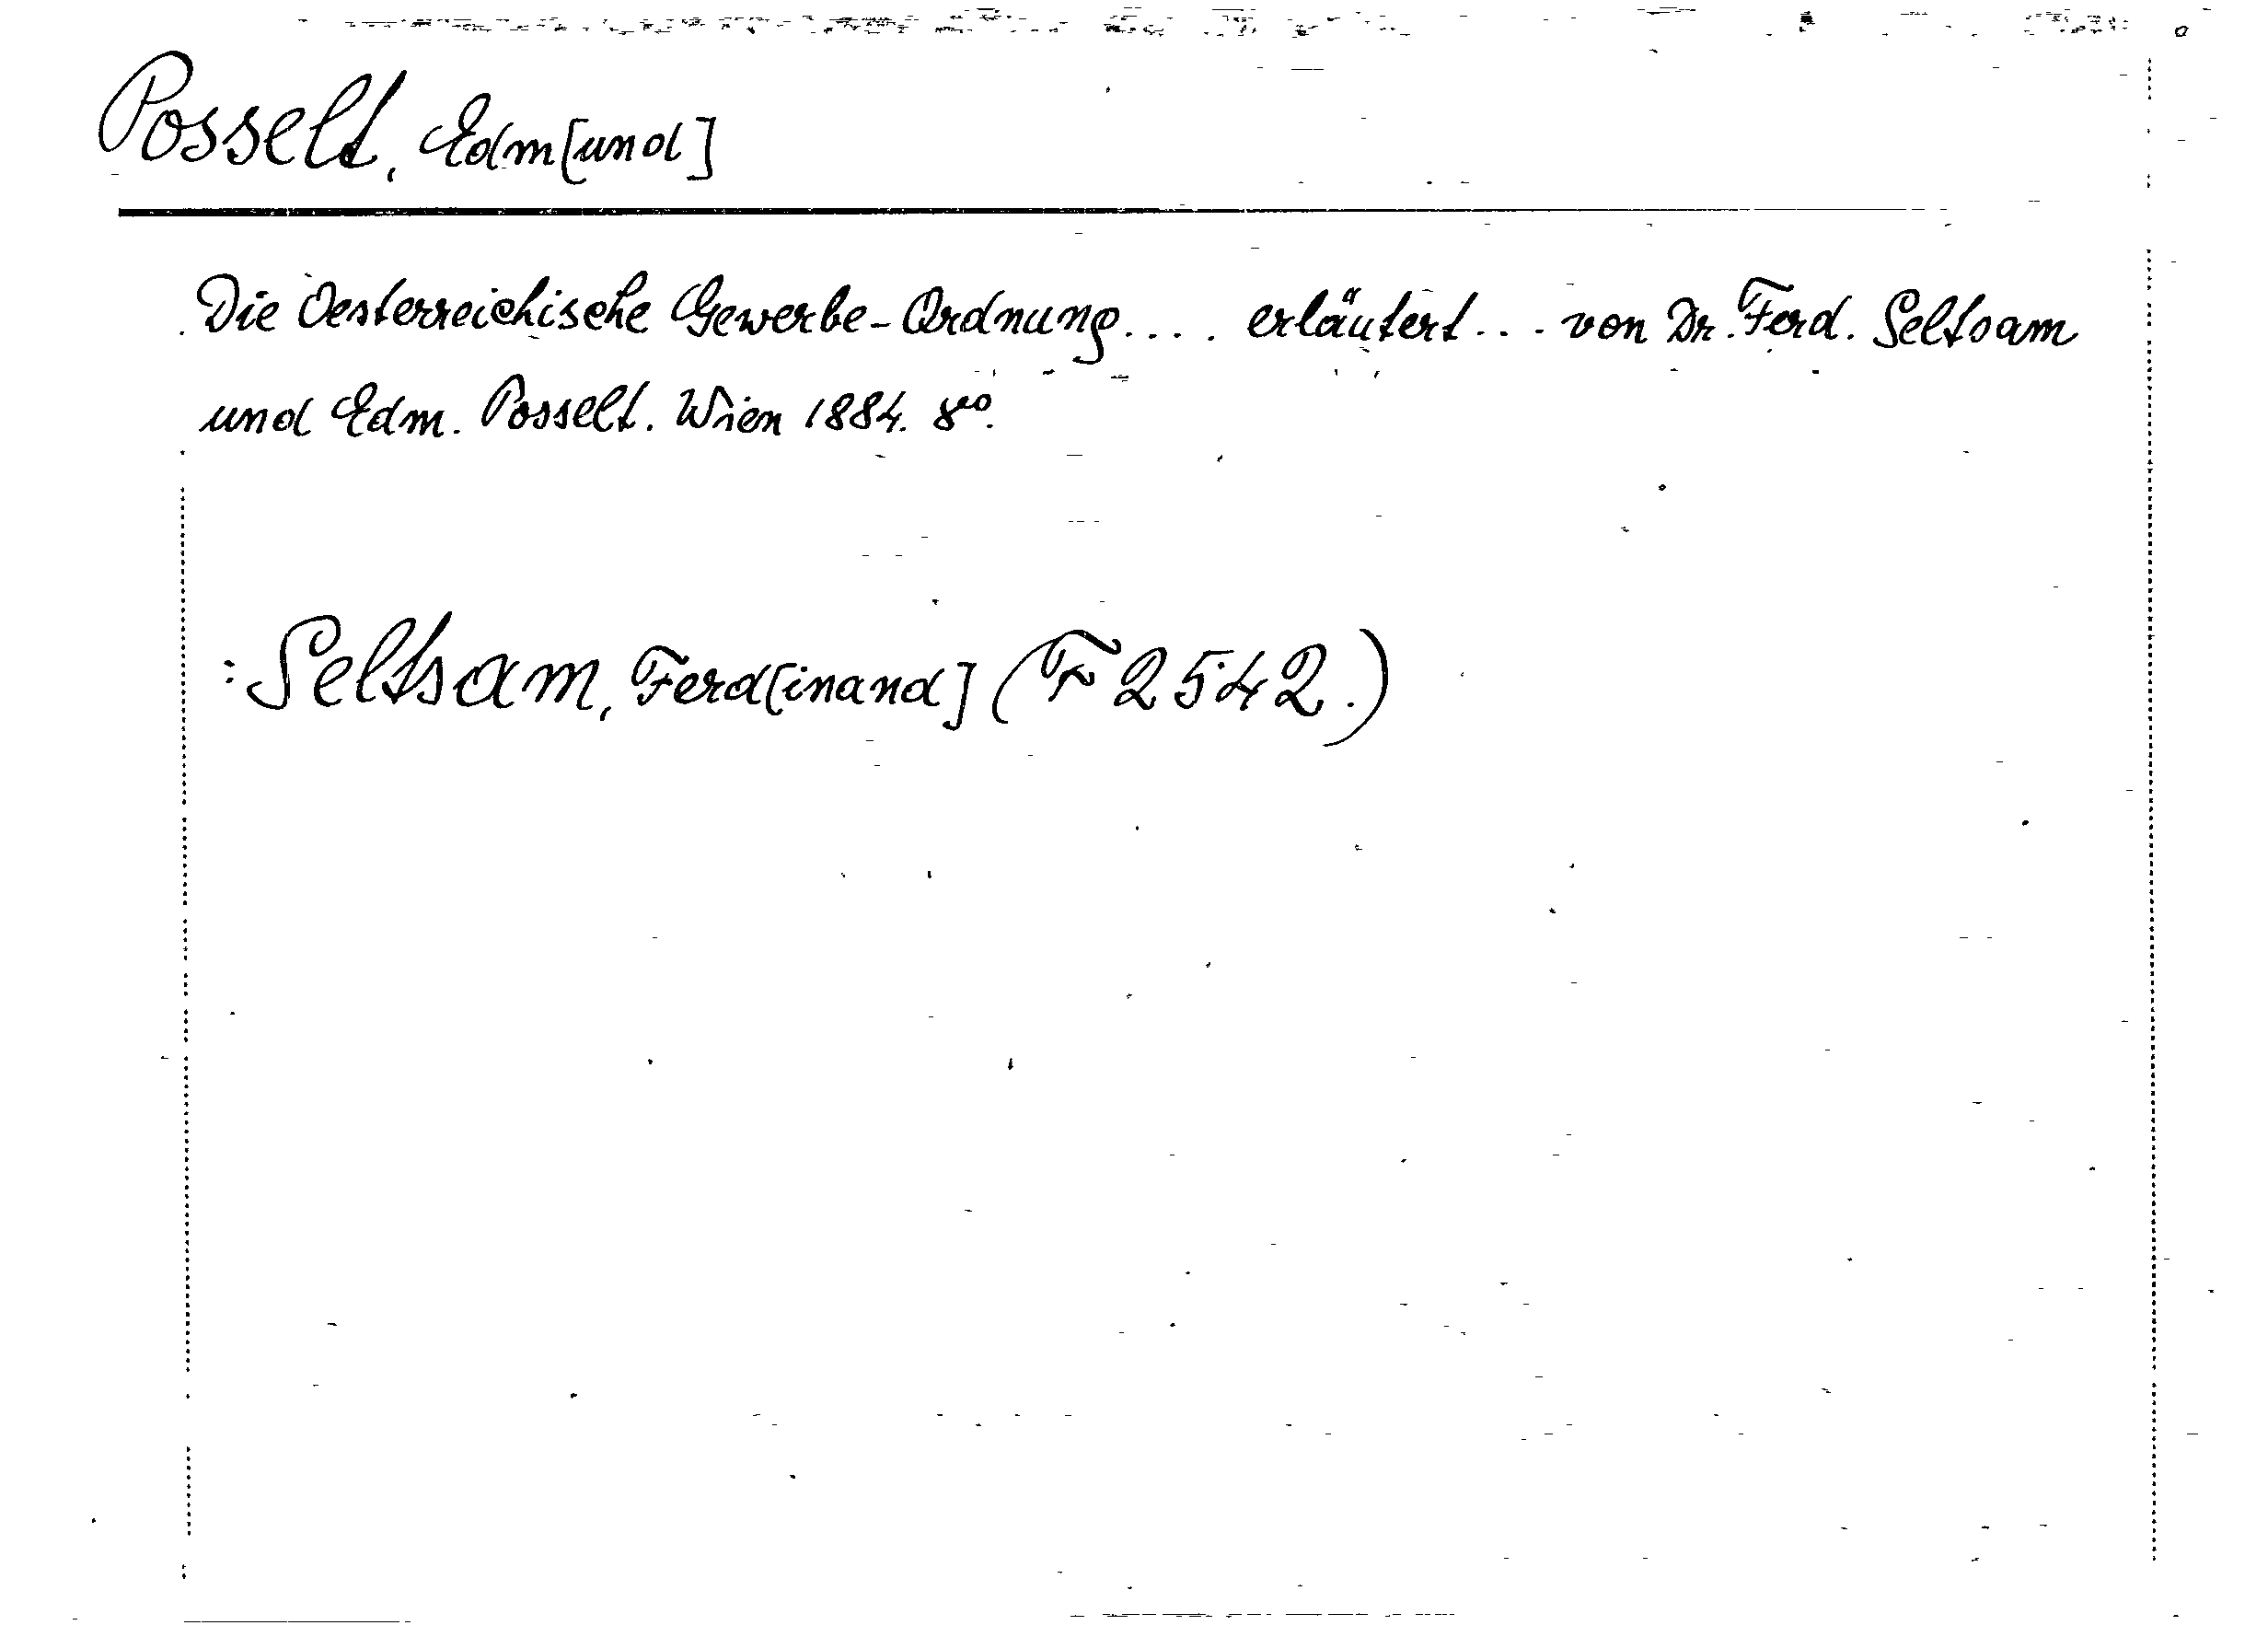 Posselt, Edm[und]
Die Oesterreichische Gewerbe-Ordnung.... erläutert... von Dr. Ferd. Seltsam
und Edm. Posselt. Wien 1884. 8vo.
: Seltsam, Ferd[inand] (F 2542.)